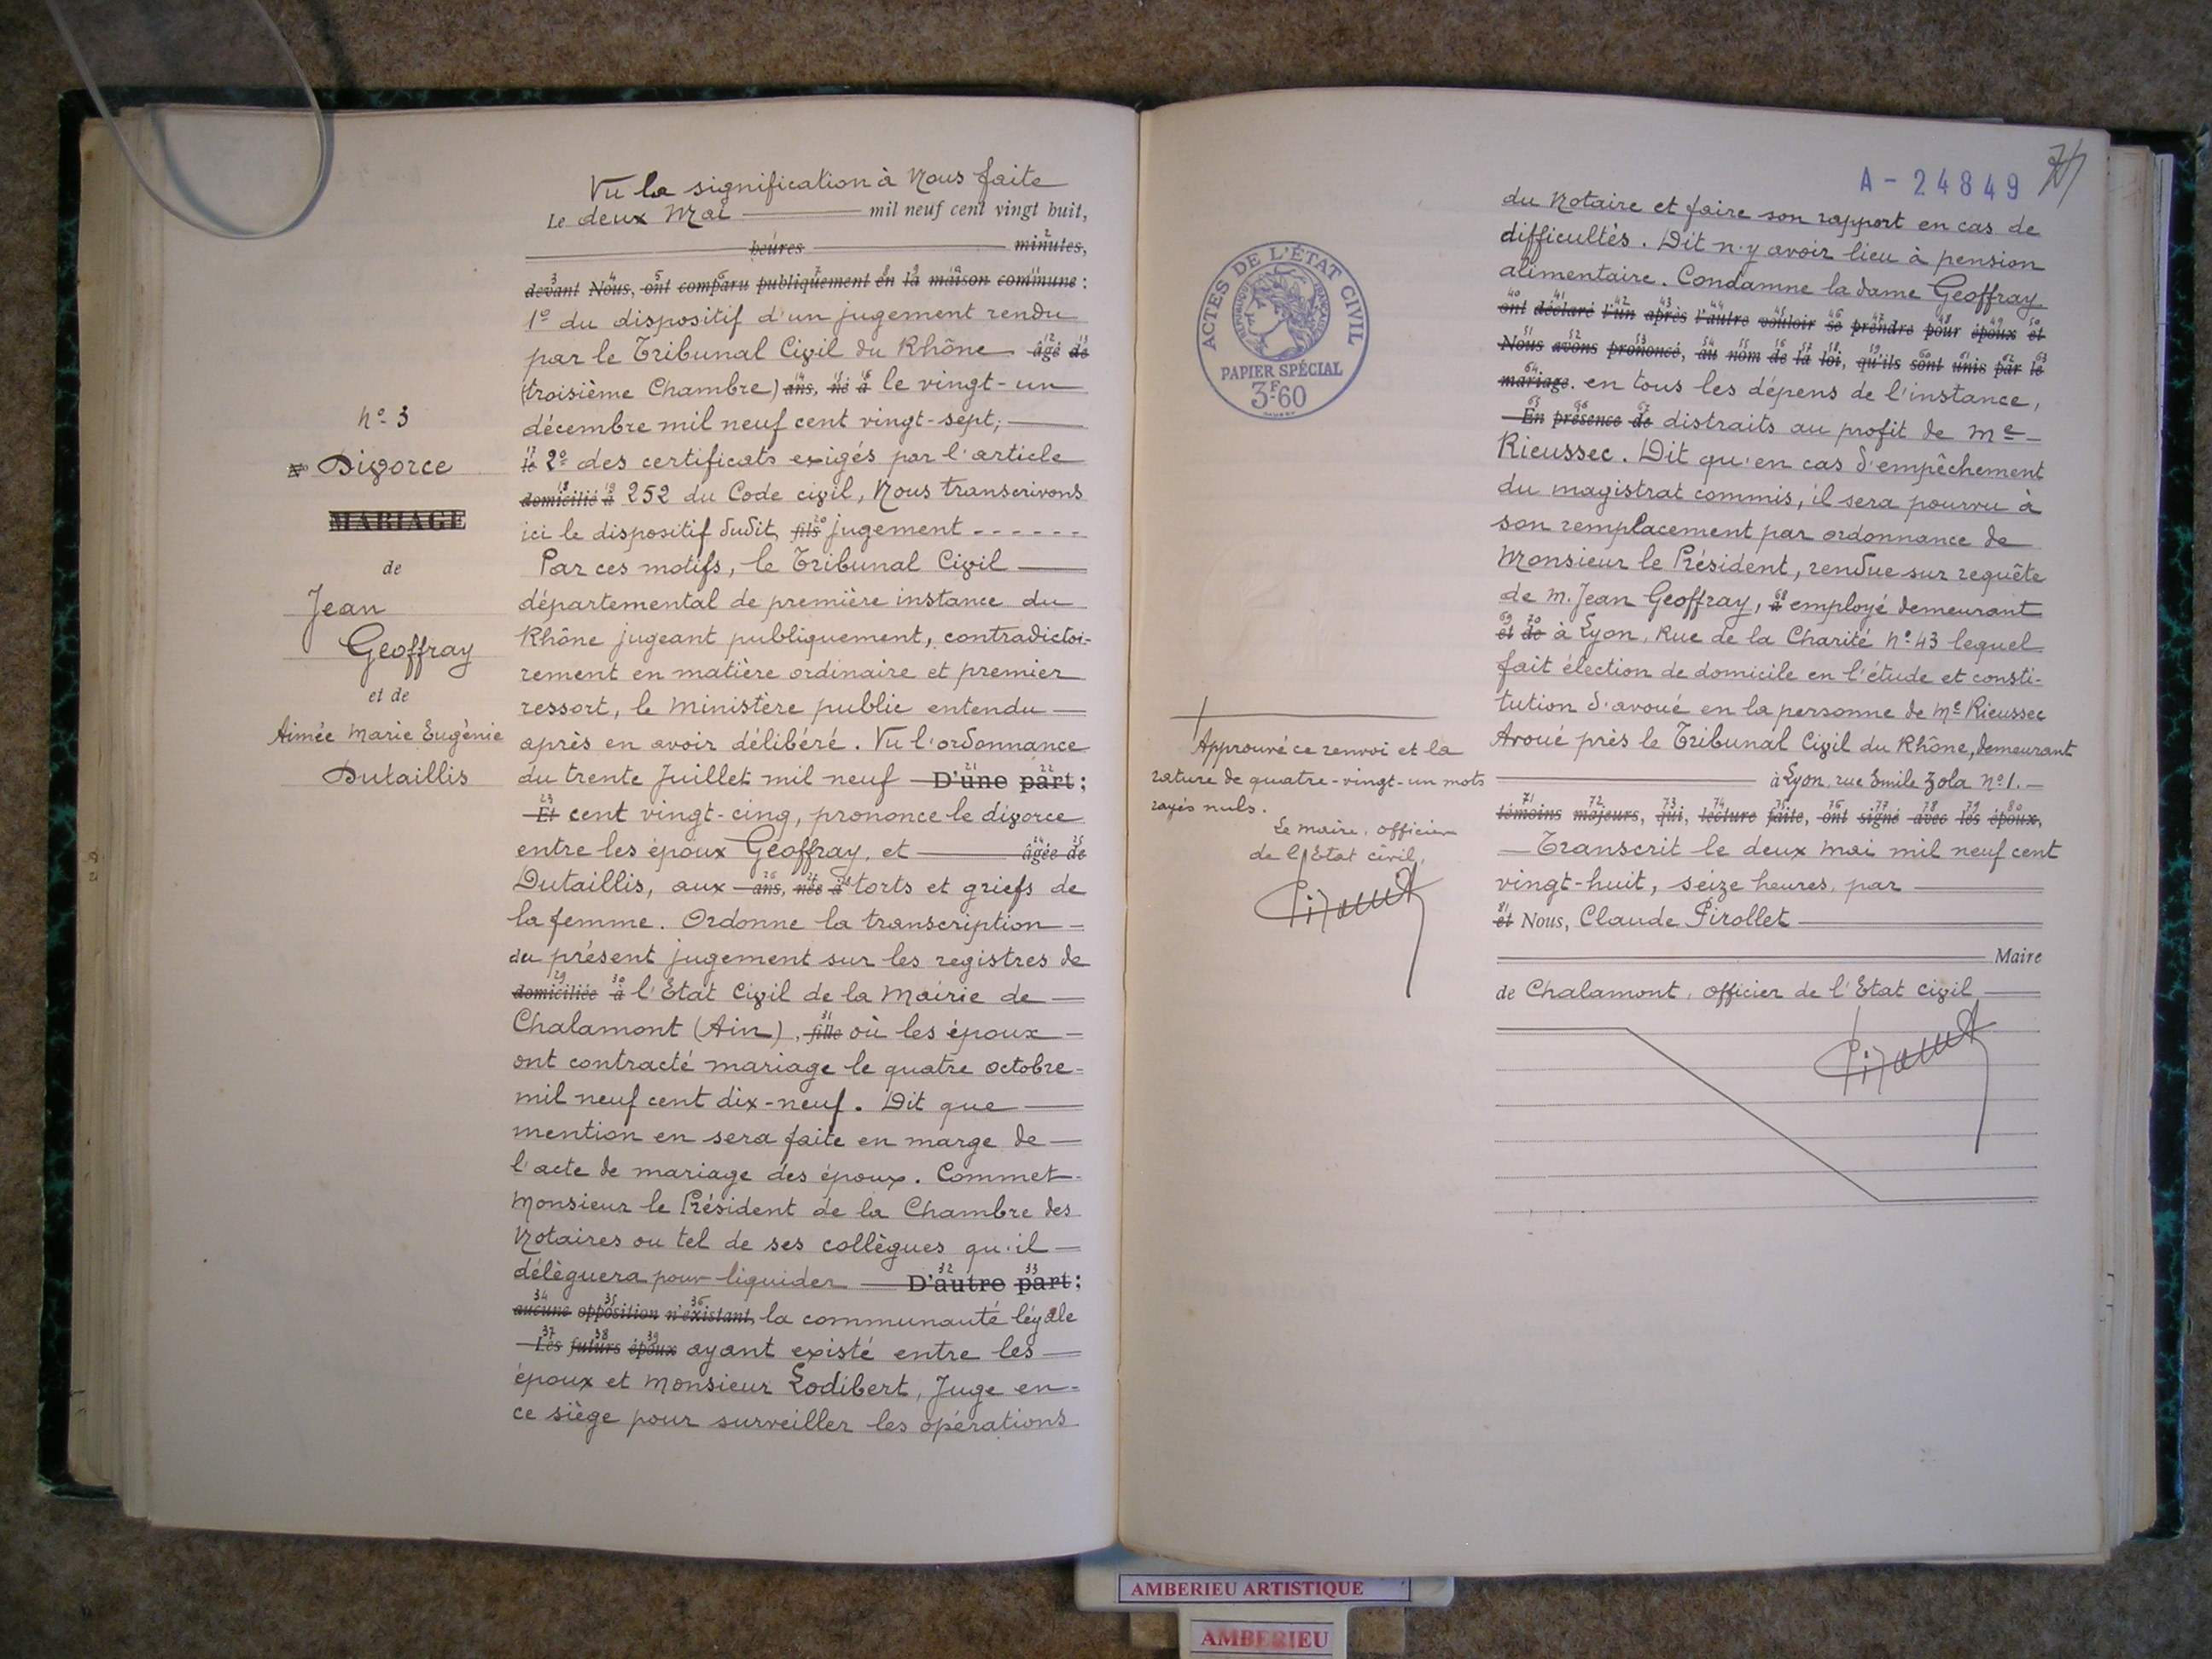 Vu la signification à Nous faite
Le deux Mai mil neuf cent vingt huit,
heures minutes,
devant Nous, ont comparu publiquement en la maison commune :
1º du dispositif d'un jugement rendu
par le Tribunal Civil du Rhône âgé de
(troisième Chambre) ans, né à le vingt-un
décembre mil neuf cent vingt-sept,
le 2º des certificats exigés par l'article
domicilié à 252 du Code civil, Nous transcrivons
ici le dispositif dudit, fils jugement - - - - - -
Par ces motifs, le Tribunal Civil
départemental de première instance du
Rhône jugeant publiquement, contradictoi-
rement en matière ordinaire et premier
ressort, le Ministère public entendu
après en avoir délibéré. Vu l'ordonnance
du trente Juillet mil neuf D'une part ;
Et cent vingt-cinq, prononce le divorce
entre les époux Geoffray, et âgée de
Dutaillis, aux ans, née à torts et griefs de
la femme. Ordonne la transcription
du présent jugement sur les registres de
domiciliée à l'Etat Civil de la Mairie de
Chalamont (Ain), fille où les époux
ont contracté mariage le quatre octobre
mil neuf cent dix-neuf. Dit que
mention en sera faite en marge de
l'acte de mariage des époux. Commet
Monsieur le Président de la Chambre des
Notaires ou tel de ses collègues qu'il
déléguera pour liquider D'autre part ;
aucune opposition n'existant, la communauté légale
Les futurs époux ayant existé entre les
époux et Monsieur Lodibert, Juge en
ce siège pour surveiller les opérations
nº 3
Divorce
MARIAGE
de
Jean
Geoffray
et de
Aimée Marie Eugénie
Dutaillis
A - 24849
du Notaire et faire son rapport en cas de
difficultés. Dit n'y avoir lieu à pension
alimentaire. Condamne la dame Geoffray
ont déclaré l'un après l'autre vouloir se prendre pour époux et
Nous avons prononcé, au nom de la loi, qu'ils sont unis par le
mariage. en tous les dépens de l'instance,
En présence de distraits au profit de Me
Rieussec. Dit qu'en cas d'empêchement
du magistrat commis, il sera pourvu à
son remplacement par ordonnance de
Monsieur le Président, rendue sur requête
de M. Jean Geoffray, à employé demeurant
et de à Lyon, Rue de la Charité nº 43 lequel
fait élection de domicile en l'étude et consti-
tution d'avoué en la personne de Me Rieussec
Avoué près le Tribunal Civil du Rhône, demeurant
à Lyon, rue Emile Zola nº 1.
témoins majeurs, qui, lecture faite, ont signé avec les époux,
Transcrit le deux mai mil neuf cent
vingt-huit, seize heures, par
et Nous, Claude Pirollet
Maire
de Chalamont, officier de l'Etat civil
ACTES DE L'ÉTAT CIVIL
RÉPUBLIQUE FRANÇAISE
PAPIER SPÉCIAL
3F60
Approuvé ce renvoi et la
rature de quatre-vingt-un mots
rayés nuls.
Le maire, officier
de l'Etat civil,
AMBERIEU ARTISTIQUE
AMBERIEU